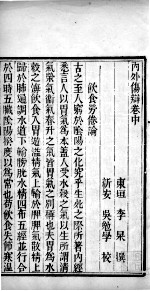 內外傷辯卷中
東垣 李杲 撰
新安 吳勉學 校
飲食勞倦論
古之至人窮於陰陽之化究乎生死之際所著內經
悉言人以胃氣為本蓋人受水穀之氣以生所謂清
氣榮氣衛氣春升之氣皆胃氣之別稱也夫胃為水
穀之海飲食入胃遊溢精氣上輸於脾脾氣散精上
歸於肺通調水道下輸膀胱水精四布五經並行合
於四時五臟陰陽揆度以為常也苟飲食失節寒溫